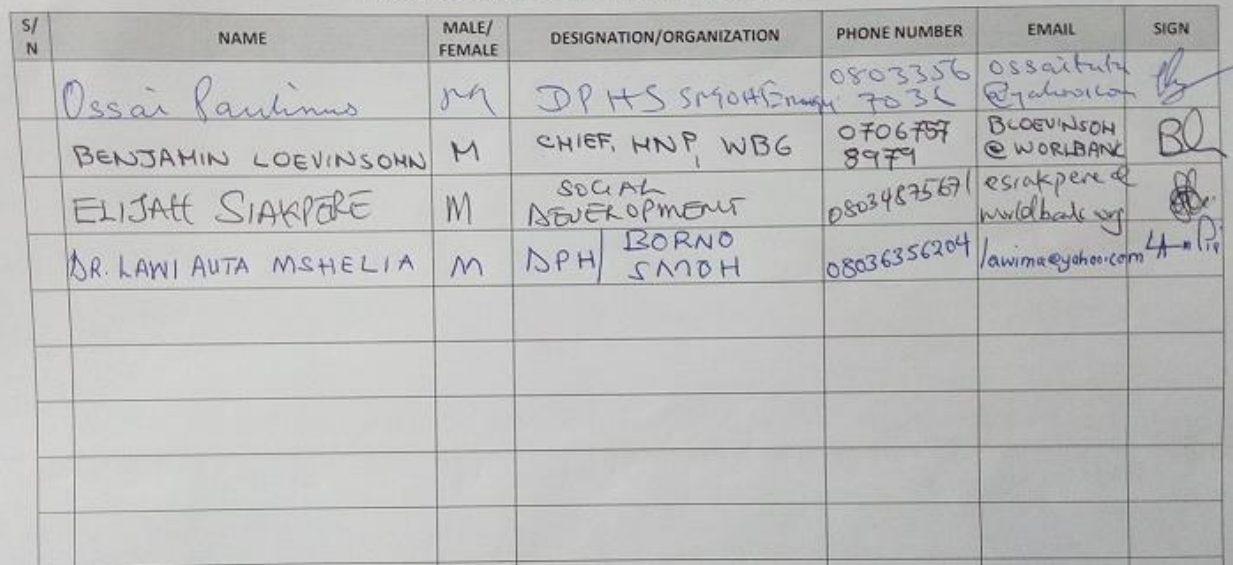 S/N NAME MALE/FEMALE DESIGNATION/ORGANIZATION PHONE NUMBER EMAIL SIGN
Ossai Paulinus M DPHS SMOH 08033567036 @yahoo.com
BENJAMIN LOEVINSOHN M CHIEF, HNP, WBG 07067578979 BLOEVINSOH@WORLBANK BL
ELIJAH SIAKPERE M SOCIAL DEVELOPMENT 08034875671 esiakpere@worldbank.org
DR. LAWI AUTA MSHELIA M DPH/ BORNO SMOH 08036356204 lawima@yahoo.com